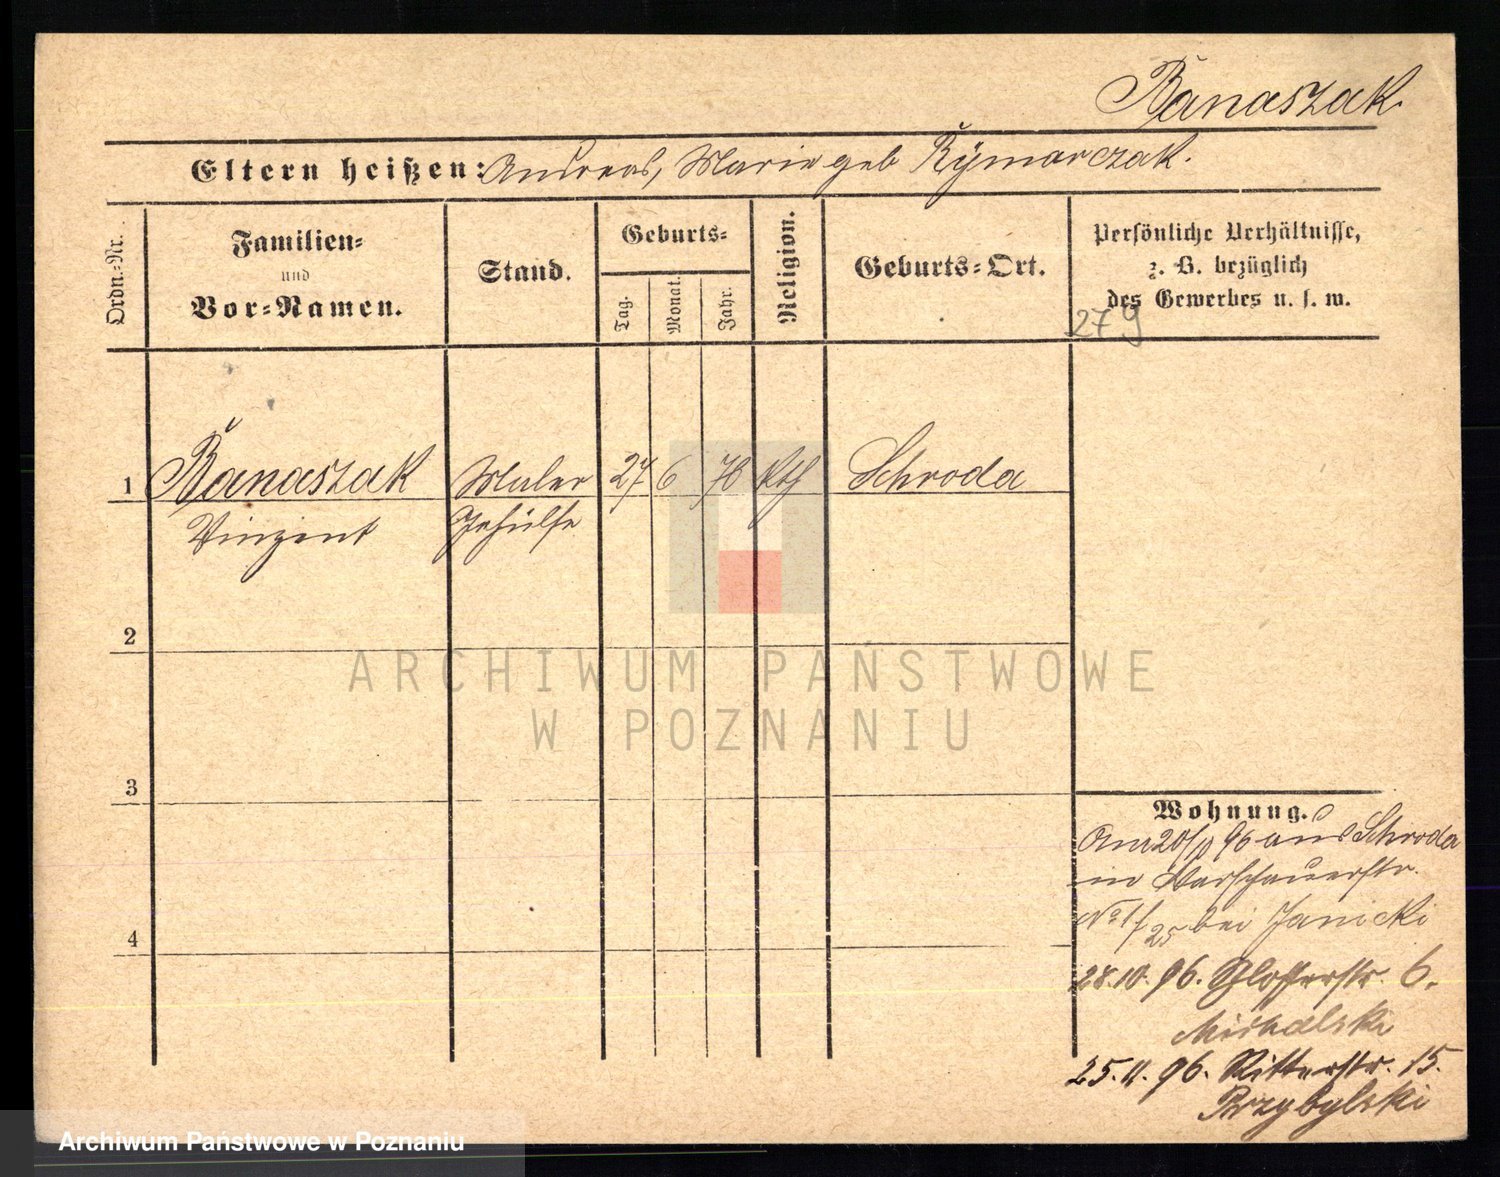 Banaszak.
Eltern heißen: Andreas, Marie geb Rymarczak.
Ordn.-Nr.
Familien-
und
Vor-Namen.
Stand.
Geburts-
Tag.
Monat.
Jahr.
Religion.
Geburts-Ort.
Persönliche Verhältnisse,
z. B. bezüglich
des Gewerbes u. s. w.
279
1 Banaszak Maler 27 6 78 kth Schroda
Vinzent Gehülfe
2
3
4
Wohnung.
Am 20/10 96 aus Schroda
in Warschauerstr.
No 1/25 bei Janicki
28.10.96. Schlosserstr. 6.
Michalski
25.11.96. Ritterstr. 15.
Przybylski
ARCHIWUM PAŃSTWOWE
W POZNANIU
Archiwum Państwowe w Poznaniu